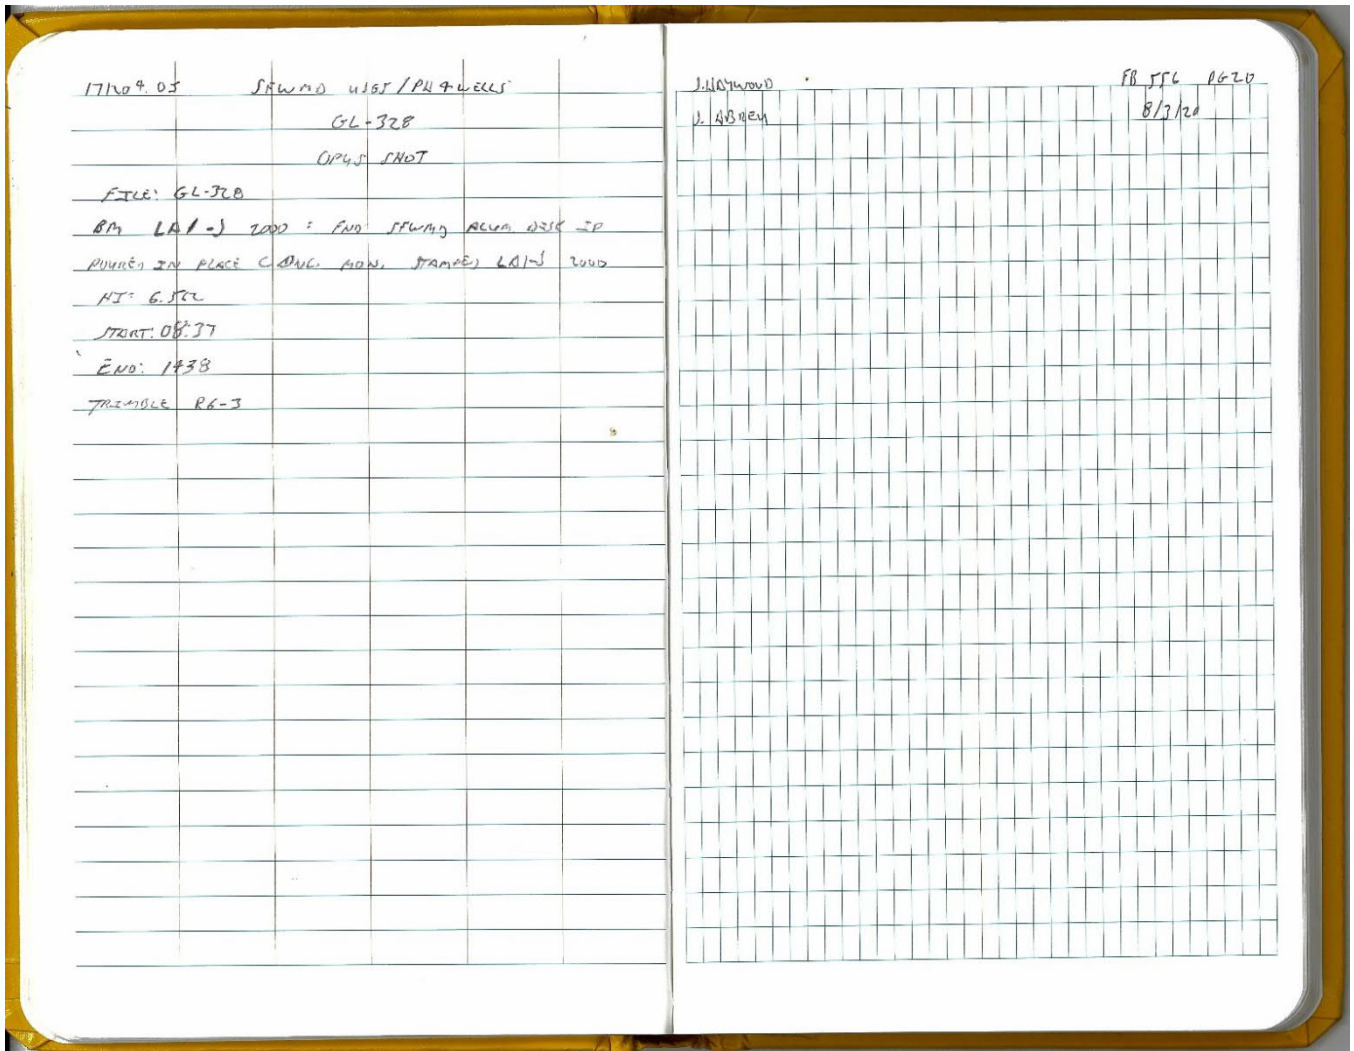 171209.05 SFWMD USGS / PH 4 WELLS
GL-328
OPUS SHOT
FILE: GL-328
BM LA1-J 2000 : FND SFWMD ALUM DISK IP
POURED IN PLACE CONC. MON. STAMPED LA1-J 2000
HI: 6.522
START: 08:37
END: 1438
TRIMBLE R6-3
J. HAYWOOD FB 556 PG 20
J. ABREU 8/3/20